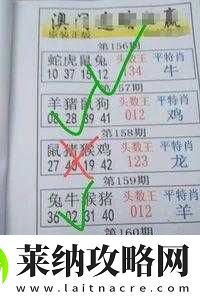 澳门
赢
原装正版
第156期
蛇虎鼠兔
10 37 15 12
头数王
134
平特肖
牛
羊猪鼠狗
28 39 41
头数王
012
平特肖
鸡
第158期
鼠猪猴鸡
27 19 42
头数王
123
平特肖
龙
第159期
兔牛猴猪
36 02 31 40
头数王
012
平特肖
羊
第160期
莱纳攻略网
www.laitnacre.com